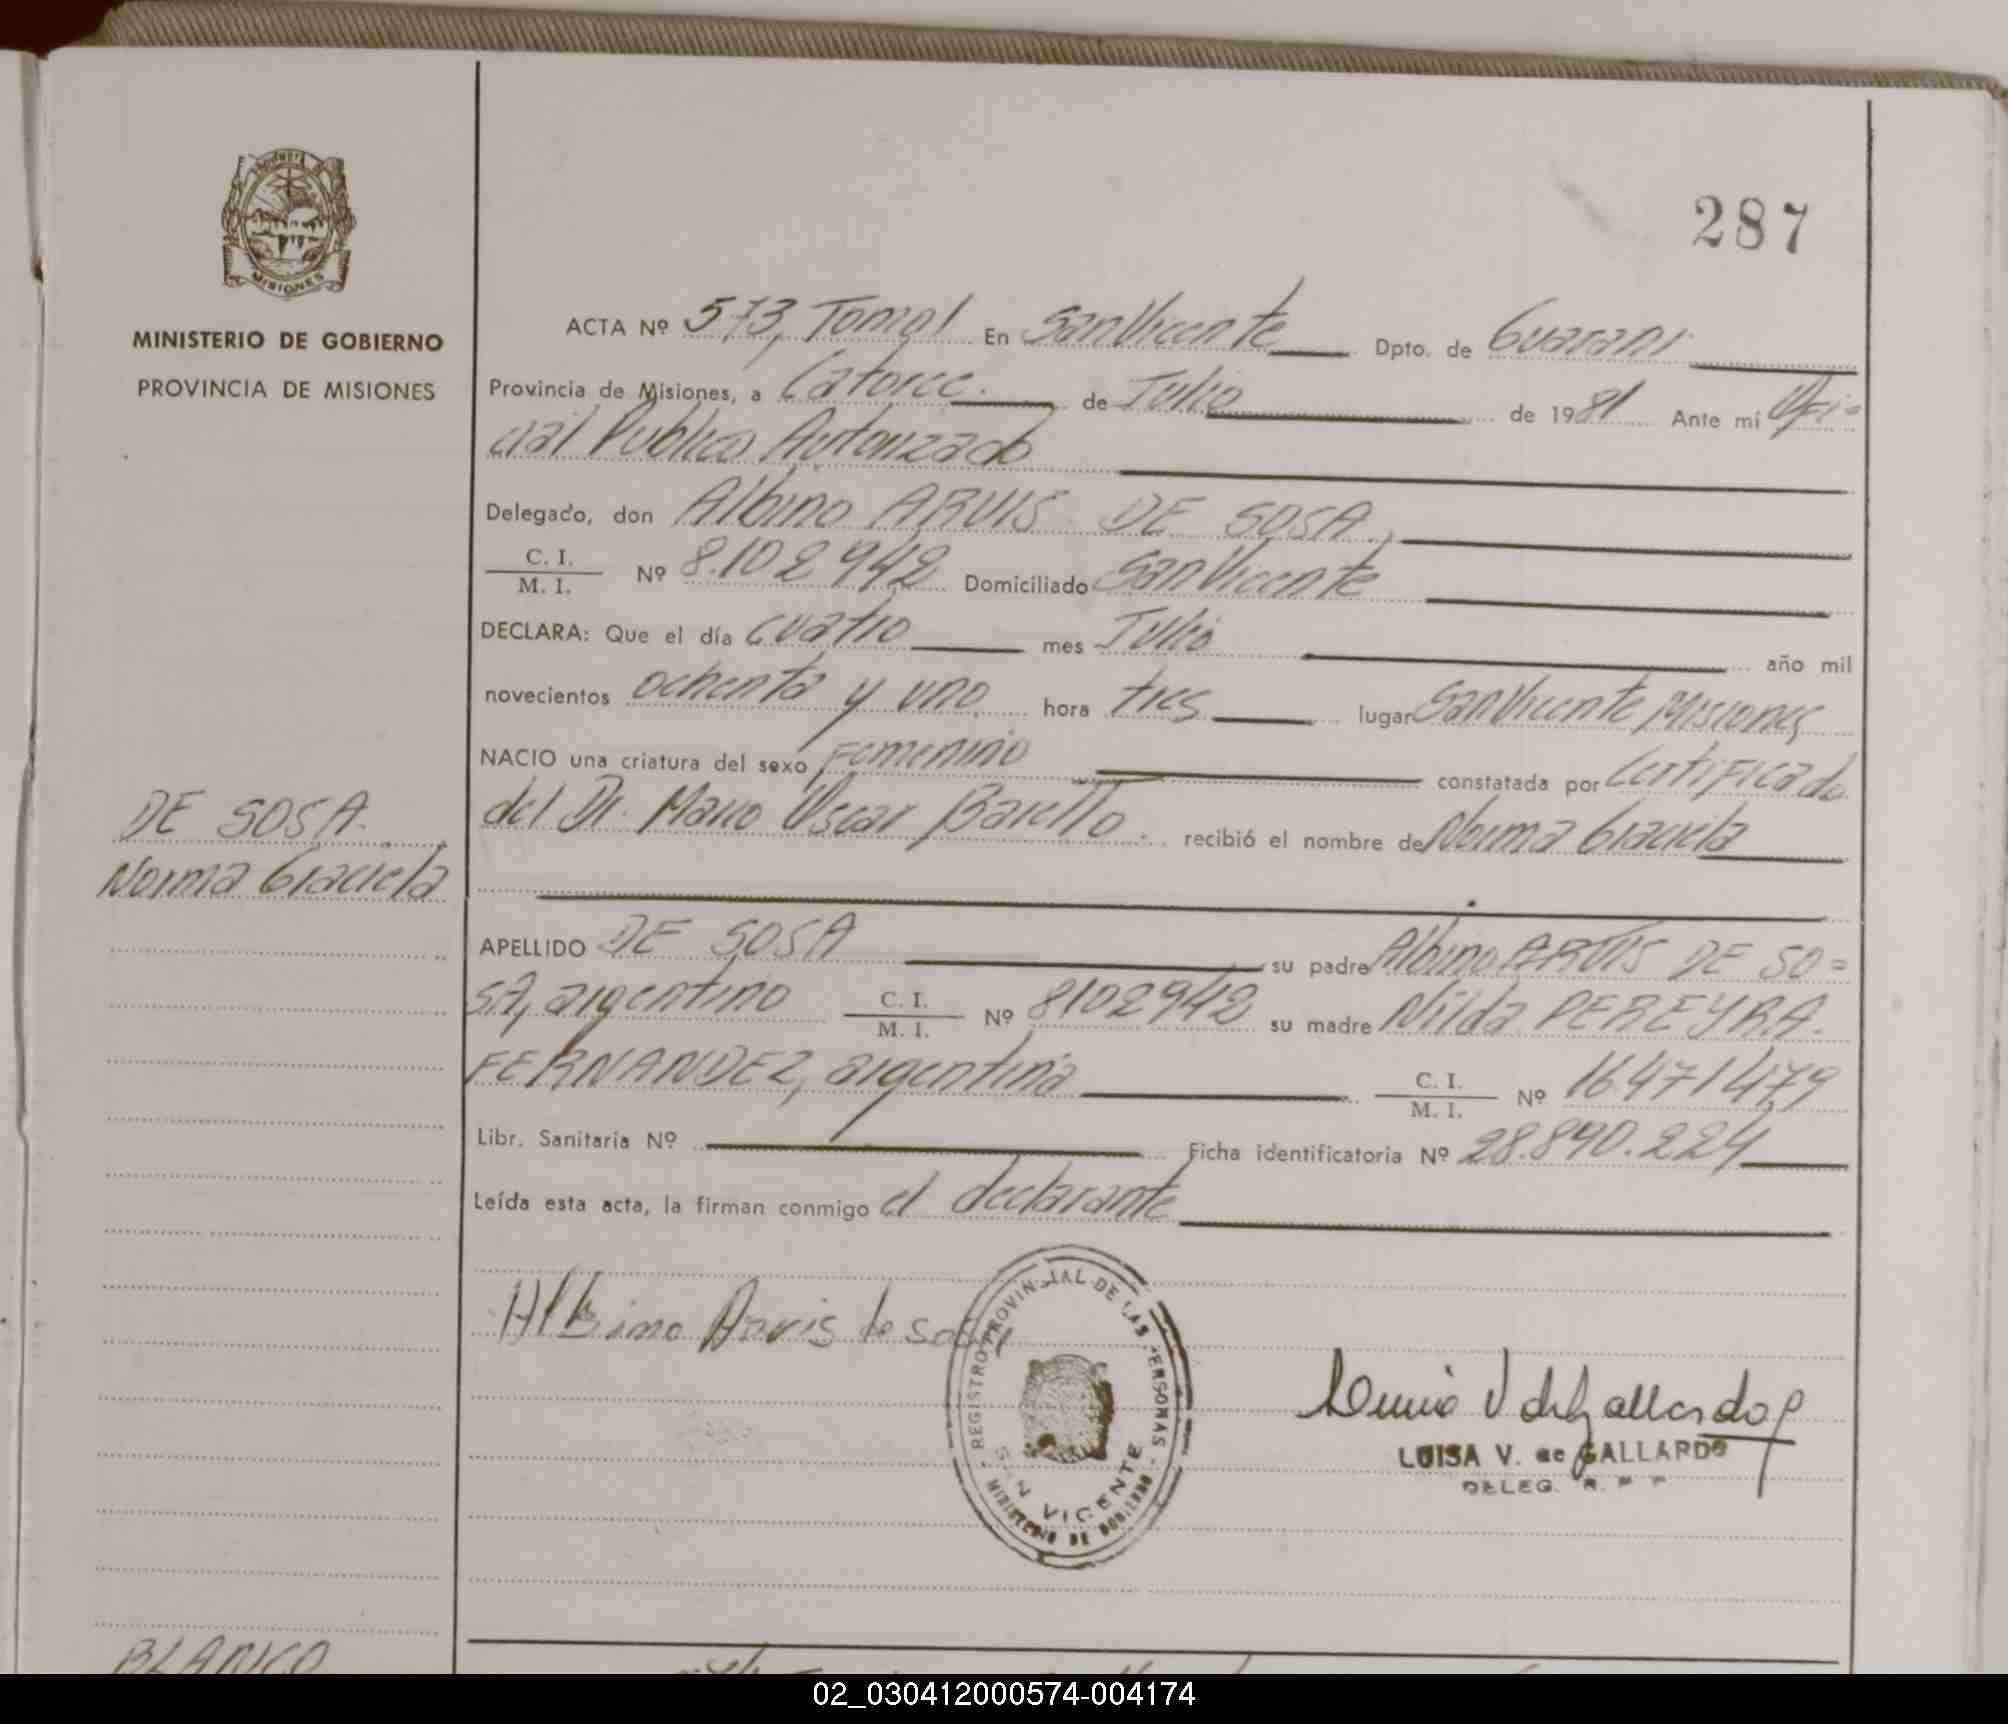 287
MISIONES
MINISTERIO DE GOBIERNO
PROVINCIA DE MISIONES
ACTA Nº 573, Tomo I En San Vicente Dpto. de Guarani
Provincia de Misiones, a Catorce. de Julio de 1981 Ante mí Ofi=
cial Publico Autorizado
Delegado, don Albino ARVIS DE SOSA,
C. I. / M. I. Nº 8.102942 Domiciliado San Vicente
DECLARA: Que el día cuatro mes Julio año mil
novecientos ochenta y uno hora tres lugar San Vicente, Misiones,
NACIO una criatura del sexo Femenino constatada por Certificado
del Dr. Mario Oscar Barello. recibió el nombre de Norma Graciela
DE SOSA.
Norma Graciela
APELLIDO DE SOSA su padre Albino ARVIS DE SO=
SA, argentino C. I. / M. I. Nº 8102942 su madre Nilda PEREYRA
FERNANDEZ, argentina C. I. / M. I. Nº 16471479
Libr. Sanitaria Nº Ficha identificatoria Nº 28.890.224
Leída esta acta, la firman conmigo el declarante
Albino Arvis de Sosa
REGISTRO PROVINCIAL DE LAS PERSONAS
SAN VICENTE
MINISTERIO DE GOBIERNO
V de Gallardo
LUISA V. de GALLARDO
DELEG. R.
BLANCO
02_030412000574-004174